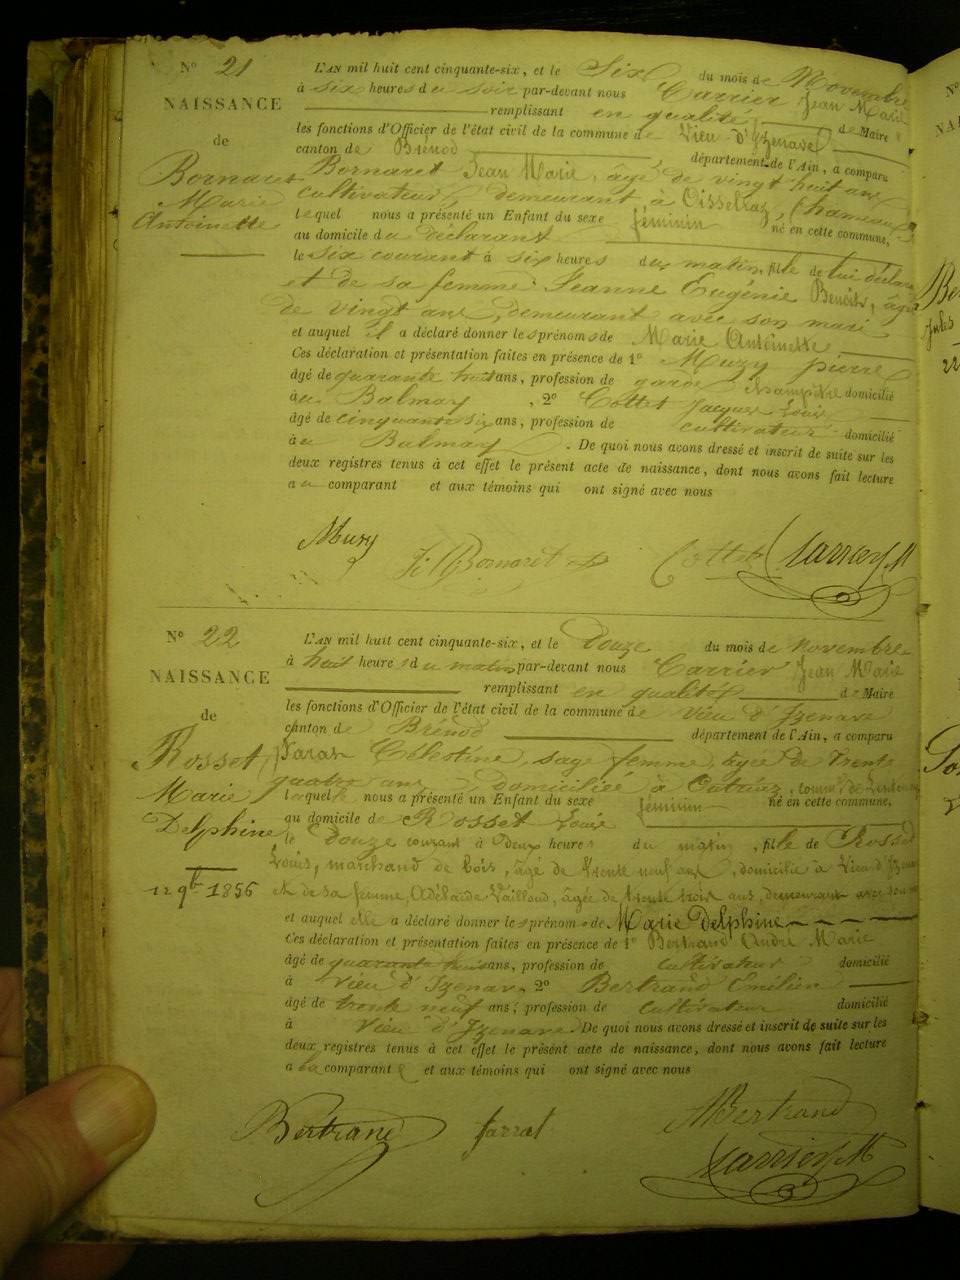 N° 21
NAISSANCE
de
Bornaret
Marie
Antoinette
L'AN mil huit cent cinquante-six, et le Six du mois de Novembre
à six heures du soir par-devant nous Carrier Jean Marie
remplissant en qualité de Maire
les fonctions d'Officier de l'état civil de la commune de Vieu d'Izenave
canton de Brénod département de l'Ain, a comparu
Bornaret Jean Marie, âgé de vingt huit ans
cultivateur, demeurant à Oisselaz,
lequel nous a présenté un Enfant du sexe féminin né en cette commune,
au domicile du déclarant
le six courant à six heures du matin, fille de lui déclarant
et de sa femme Jeanne Eugénie Benoit, âgée
de vingt ans, demeurant avec son mari
et auquel il a déclaré donner les prénoms de Marie Antoinette
Ces déclaration et présentation faites en présence de 1° Muzy pierre
âgé de quarante huit ans, profession de garde champêtre domicilié
à au Balmay, 2° Cottet Jacques Louis
âgé de cinquante six ans, profession de cultivateur domicilié
à au Balmay. De quoi nous avons dressé et inscrit de suite sur les
deux registres tenus à cet effet le présent acte de naissance, dont nous avons fait lecture
au comparant et aux témoins qui ont signé avec nous
Muzy Bornaret Cottet Carrier M
N° 22
NAISSANCE
de
Rosset
Marie
Delphine
12 9bre 1856
L'AN mil huit cent cinquante-six, et le Douze du mois de novembre
à huit heures du matin par-devant nous Carrier Jean Marie
remplissant en qualité de Maire
les fonctions d'Officier de l'état civil de la commune de Vieu d'Izenave
canton de Brénod département de l'Ain, a comparu
Célestine, sage femme, âgée de Trente
quatre ans, Domiciliée à Outriaz,
laquelle nous a présenté un Enfant du sexe féminin né en cette commune,
au domicile de Rosset Louis
le Douze courant à Deux heures du matin, fille de Rosset
Louis, marchand de bois, âgé de trente neuf ans, domicilié à Vieu d'Izenave
et de sa femme Adélaïde Vailloud, âgée de trente trois ans, demeurant avec son
et auquel elle a déclaré donner les prénoms de Marie Delphine
Ces déclaration et présentation faites en présence de 1° Bertrand André Marie
âgé de quarante huit ans, profession de cultivateur domicilié
à Vieu d'Izenave, 2° Bertrand Emilien
âgé de trente neuf ans, profession de cultivateur domicilié
à Vieu d'Izenave. De quoi nous avons dressé et inscrit de suite sur les
deux registres tenus à cet effet le présent acte de naissance, dont nous avons fait lecture
a la comparante et aux témoins qui ont signé avec nous
Bertrand farrat Bertrand
Carrier M